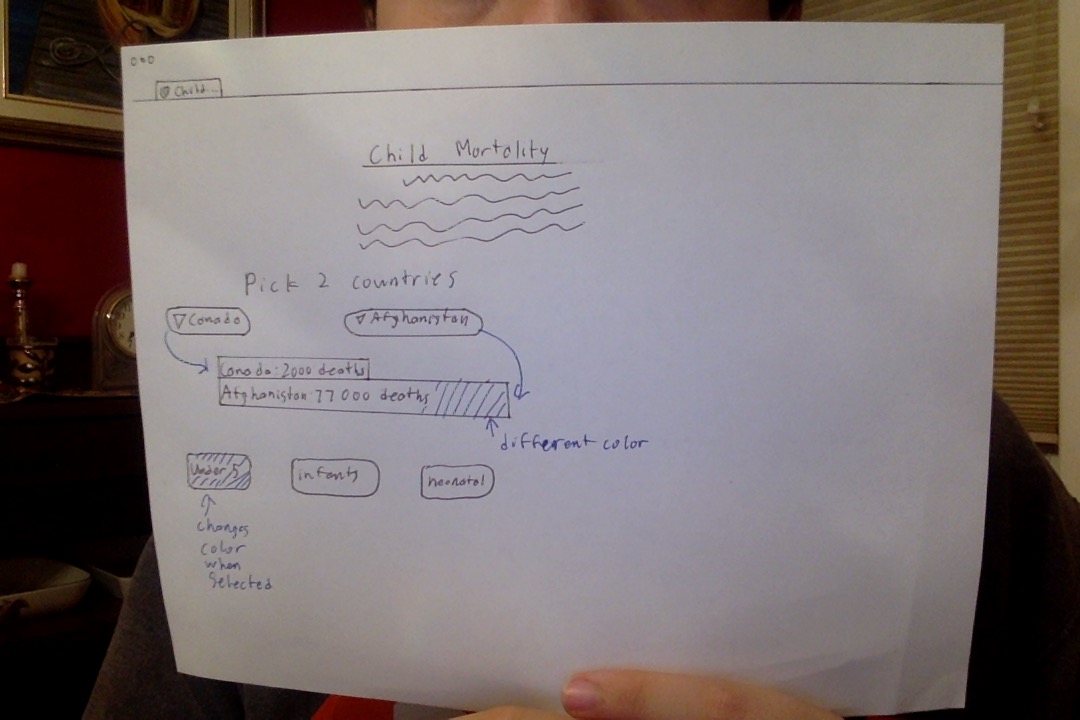 Child...
Child Mortality
Pick 2 countries
Canada
Afghanistan
Canada: 2000 deaths
Afghanistan: 77 000 deaths
different color
Under 5
infants
neonatal
changes
color
when
Selected